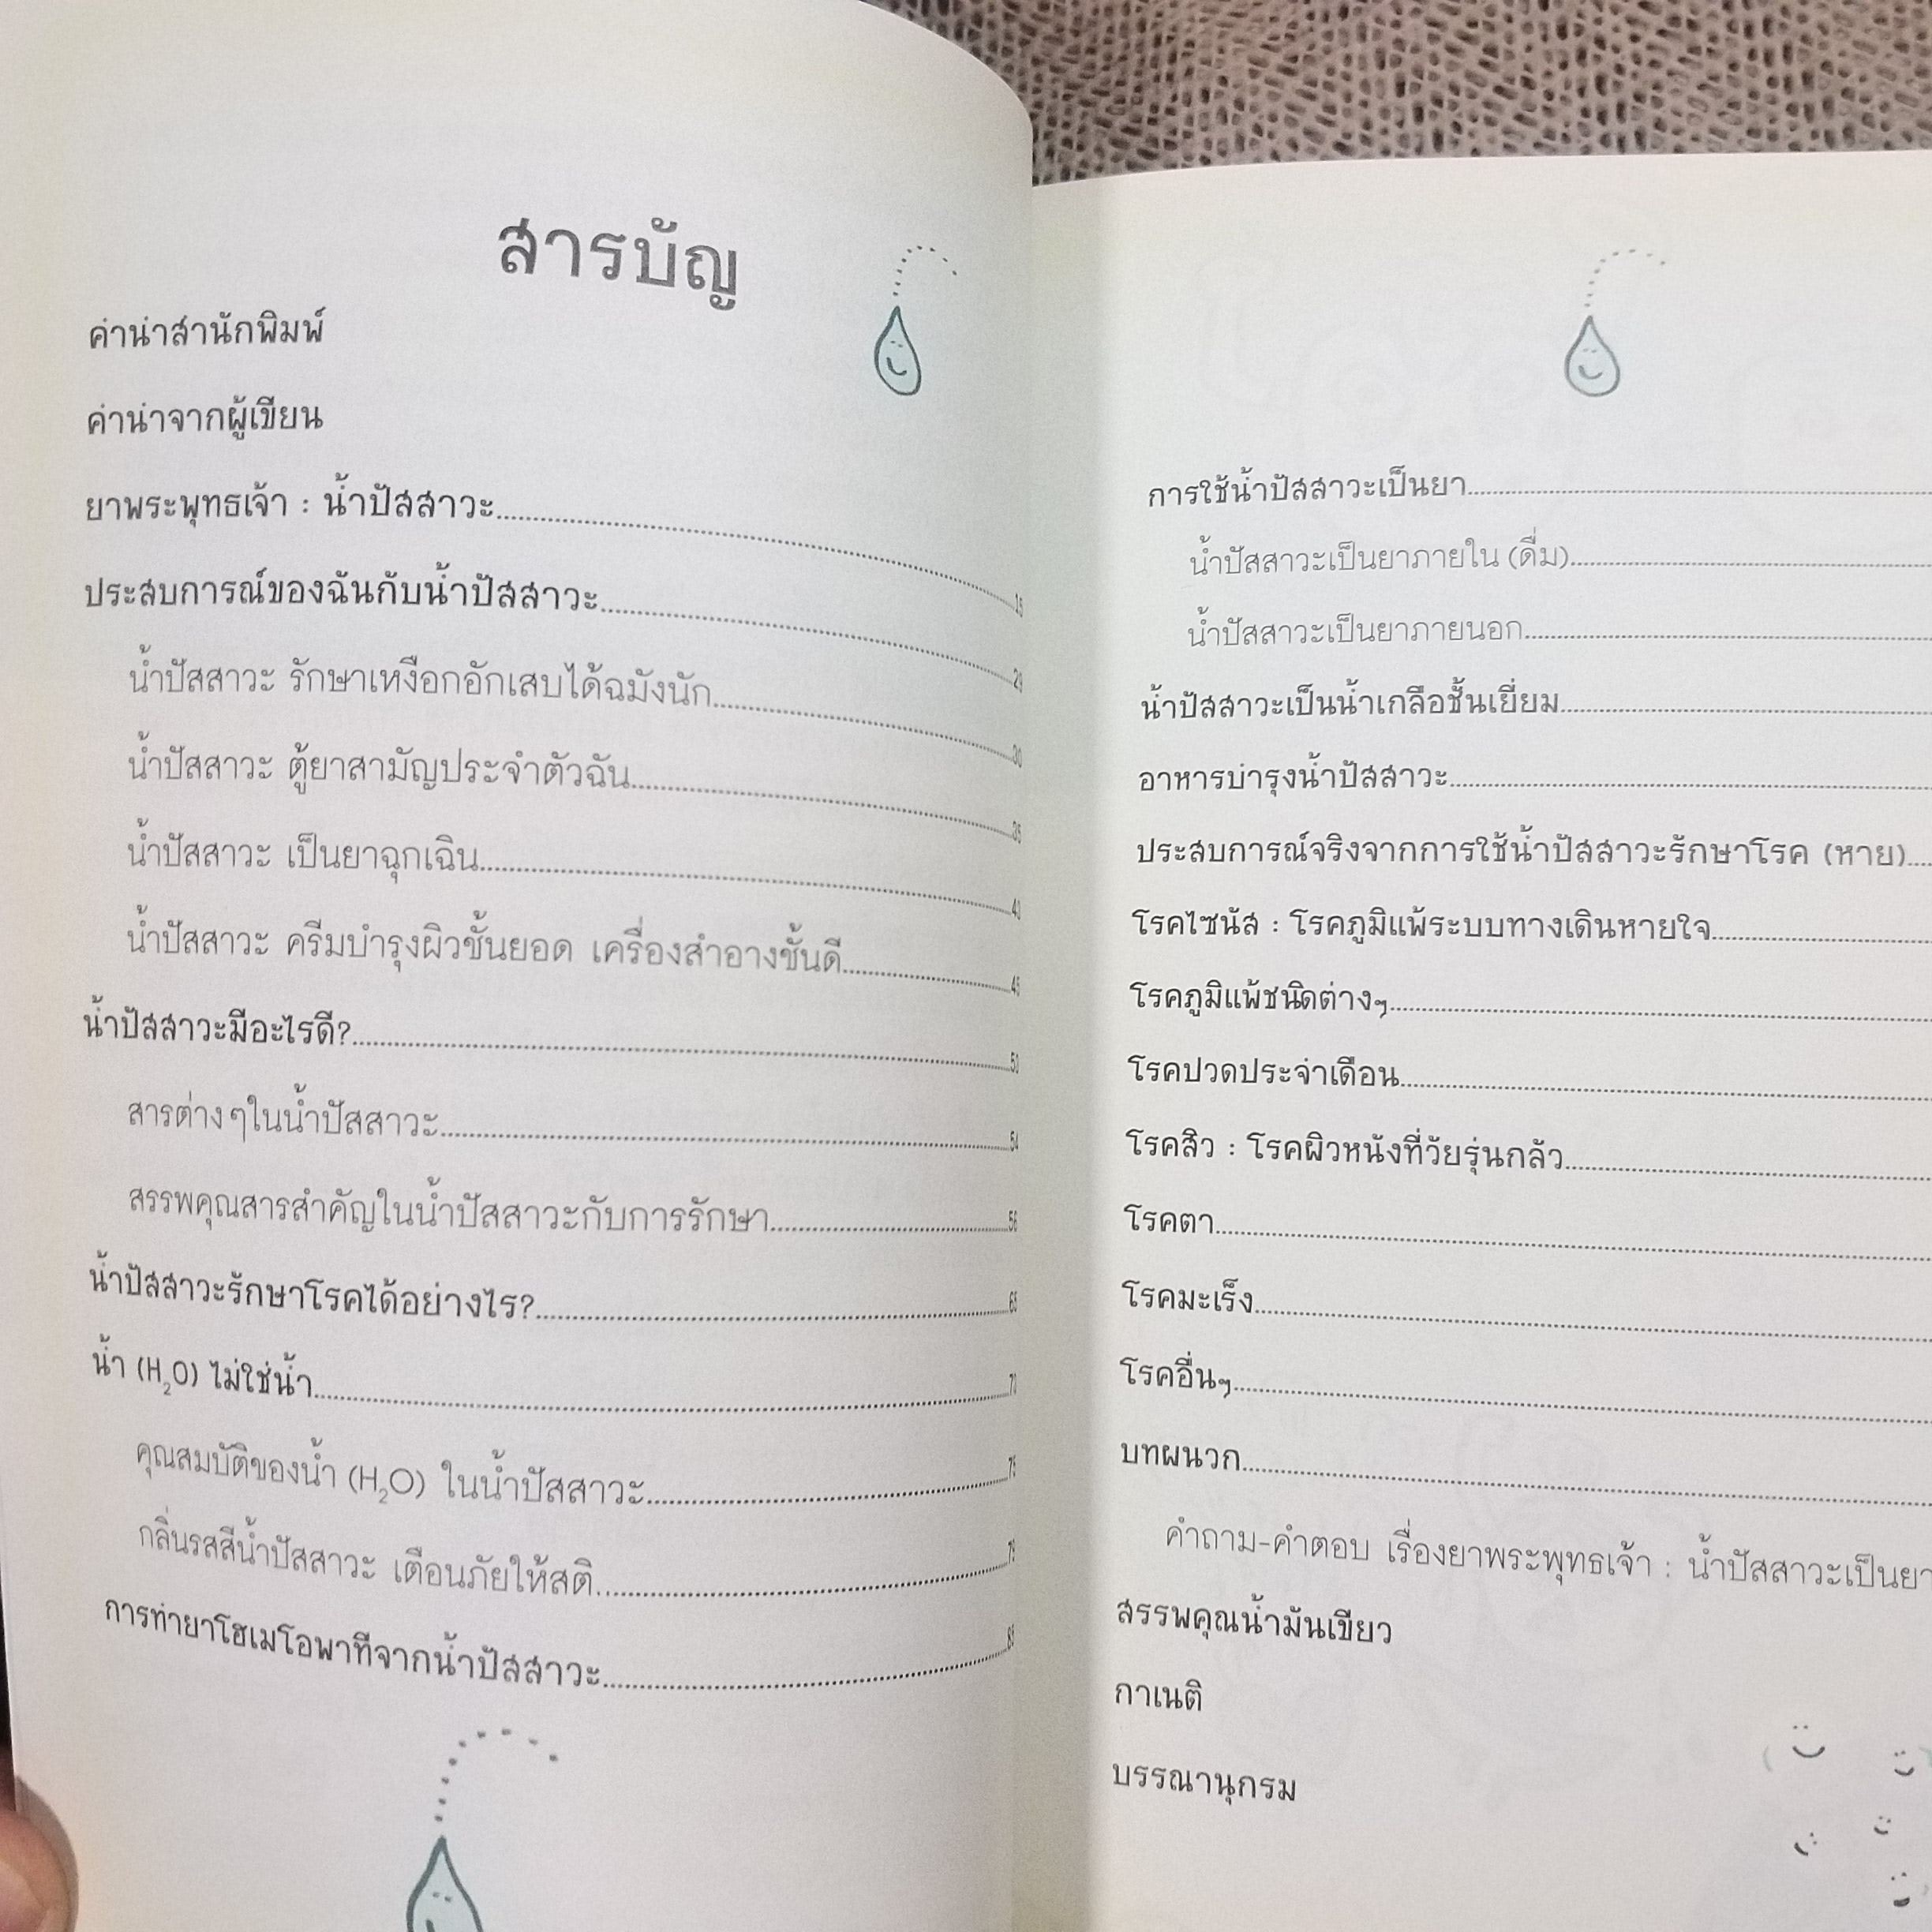 สารบัญ
คำนำสำนักพิมพ์
คำนำจากผู้เขียน
ยาพระพุทธเจ้า : น้ำปัสสาวะ
ประสบการณ์ของฉันกับน้ำปัสสาวะ
น้ำปัสสาวะ รักษาเหงือกอักเสบได้ฉมังนัก
น้ำปัสสาวะ ตู้ยาสามัญประจำตัวฉัน
น้ำปัสสาวะ เป็นยาฉุกเฉิน
น้ำปัสสาวะ ครีมบำรุงผิวชั้นยอด เครื่องสำอางชั้นดี
น้ำปัสสาวะมีอะไรดี?
สารต่างๆในน้ำปัสสาวะ
สรรพคุณสารสำคัญในน้ำปัสสาวะกับการรักษา
น้ำปัสสาวะรักษาโรคได้อย่างไร?
น้ำ (H₂O) ไม่ใช่น้ำ
คุณสมบัติของน้ำ (H₂O) ในน้ำปัสสาวะ
กลิ่นรสสีน้ำปัสสาวะ เตือนภัยให้สติ
การทำยาโฮเมโอพาทีจากน้ำปัสสาวะ
การใช้น้ำปัสสาวะเป็นยา
น้ำปัสสาวะเป็นยาภายใน (ดื่ม)
น้ำปัสสาวะเป็นยาภายนอก
น้ำปัสสาวะเป็นน้ำเกลือชั้นเยี่ยม
อาหารบำรุงน้ำปัสสาวะ
ประสบการณ์จริงจากการใช้น้ำปัสสาวะรักษาโรค (หาย)
โรคไซนัส : โรคภูมิแพ้ระบบทางเดินหายใจ
โรคภูมิแพ้ชนิดต่างๆ
โรคปวดประจำเดือน
โรคสิว : โรคผิวหนังที่วัยรุ่นกลัว
โรคตา
โรคมะเร็ง
โรคอื่นๆ
บทผนวก
คำถาม-คำตอบ เรื่องยาพระพุทธเจ้า : น้ำปัสสาวะเป็นยา
สรรพคุณน้ำมันเขียว
กาเนติ
บรรณานุกรม